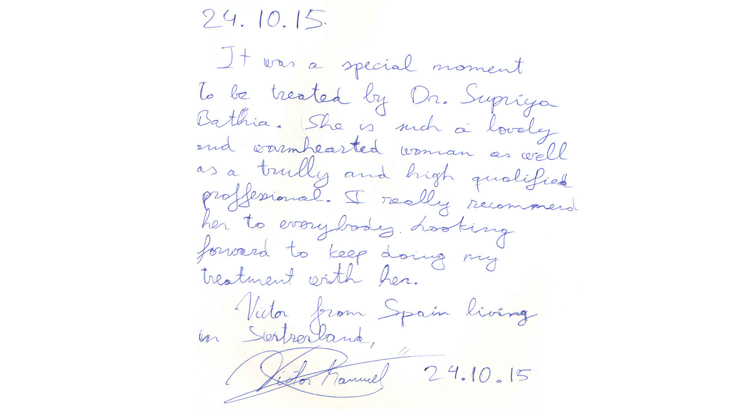 24.10.15.
It was a special moment
to be treated by Dr. Supriya
Bathia. She is such a lovely
and warmhearted woman as well
as a trully and high qualified
proffesional. I really recommend
her to everybody. Looking
forward to keep doing my
treatment with her.
Victor from Spain living
in Switzerland,
Victor Manuel 24.10.15